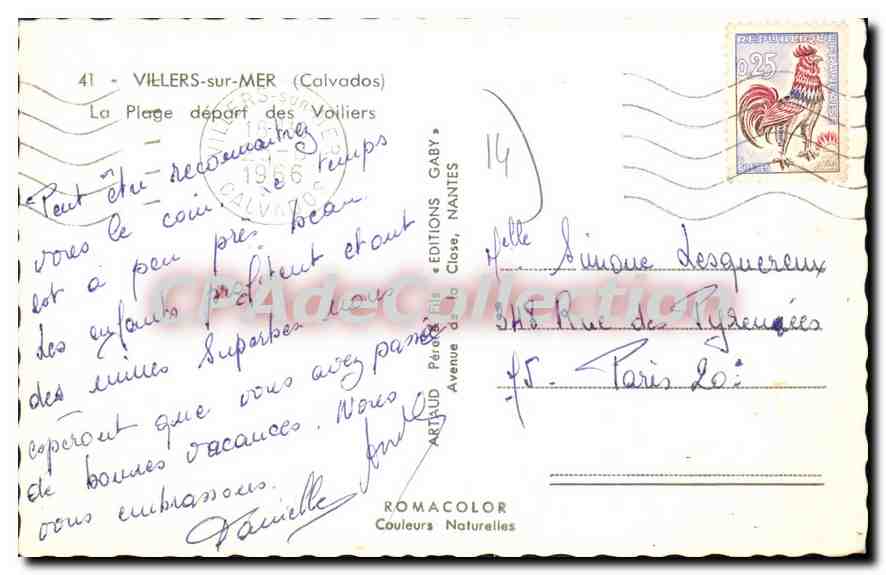 41 - VILLERS-sur-MER (Calvados)
La Plage départ des Voiliers
VILLERS-sur-MER
1966
CALVADOS
REPUBLIQUE FRANCAISE
0,25
14
Peut être reconnaitrez
vous le coin. Le temps
est à peu près beau.
Les enfants profitent et ont
des mines superbes. nous
esperont que vous avez passée
de bonnes vacances. Nous
vous embrassons.
Danielle André
ARTAUD Père & Fils « EDITIONS GABY »
Avenue de la Close, NANTES
Melle Simone Lesquereux
348 Rue des Pyrennées
75. Paris 20e
ROMACOLOR
Couleurs Naturelles
CPAdeCollection